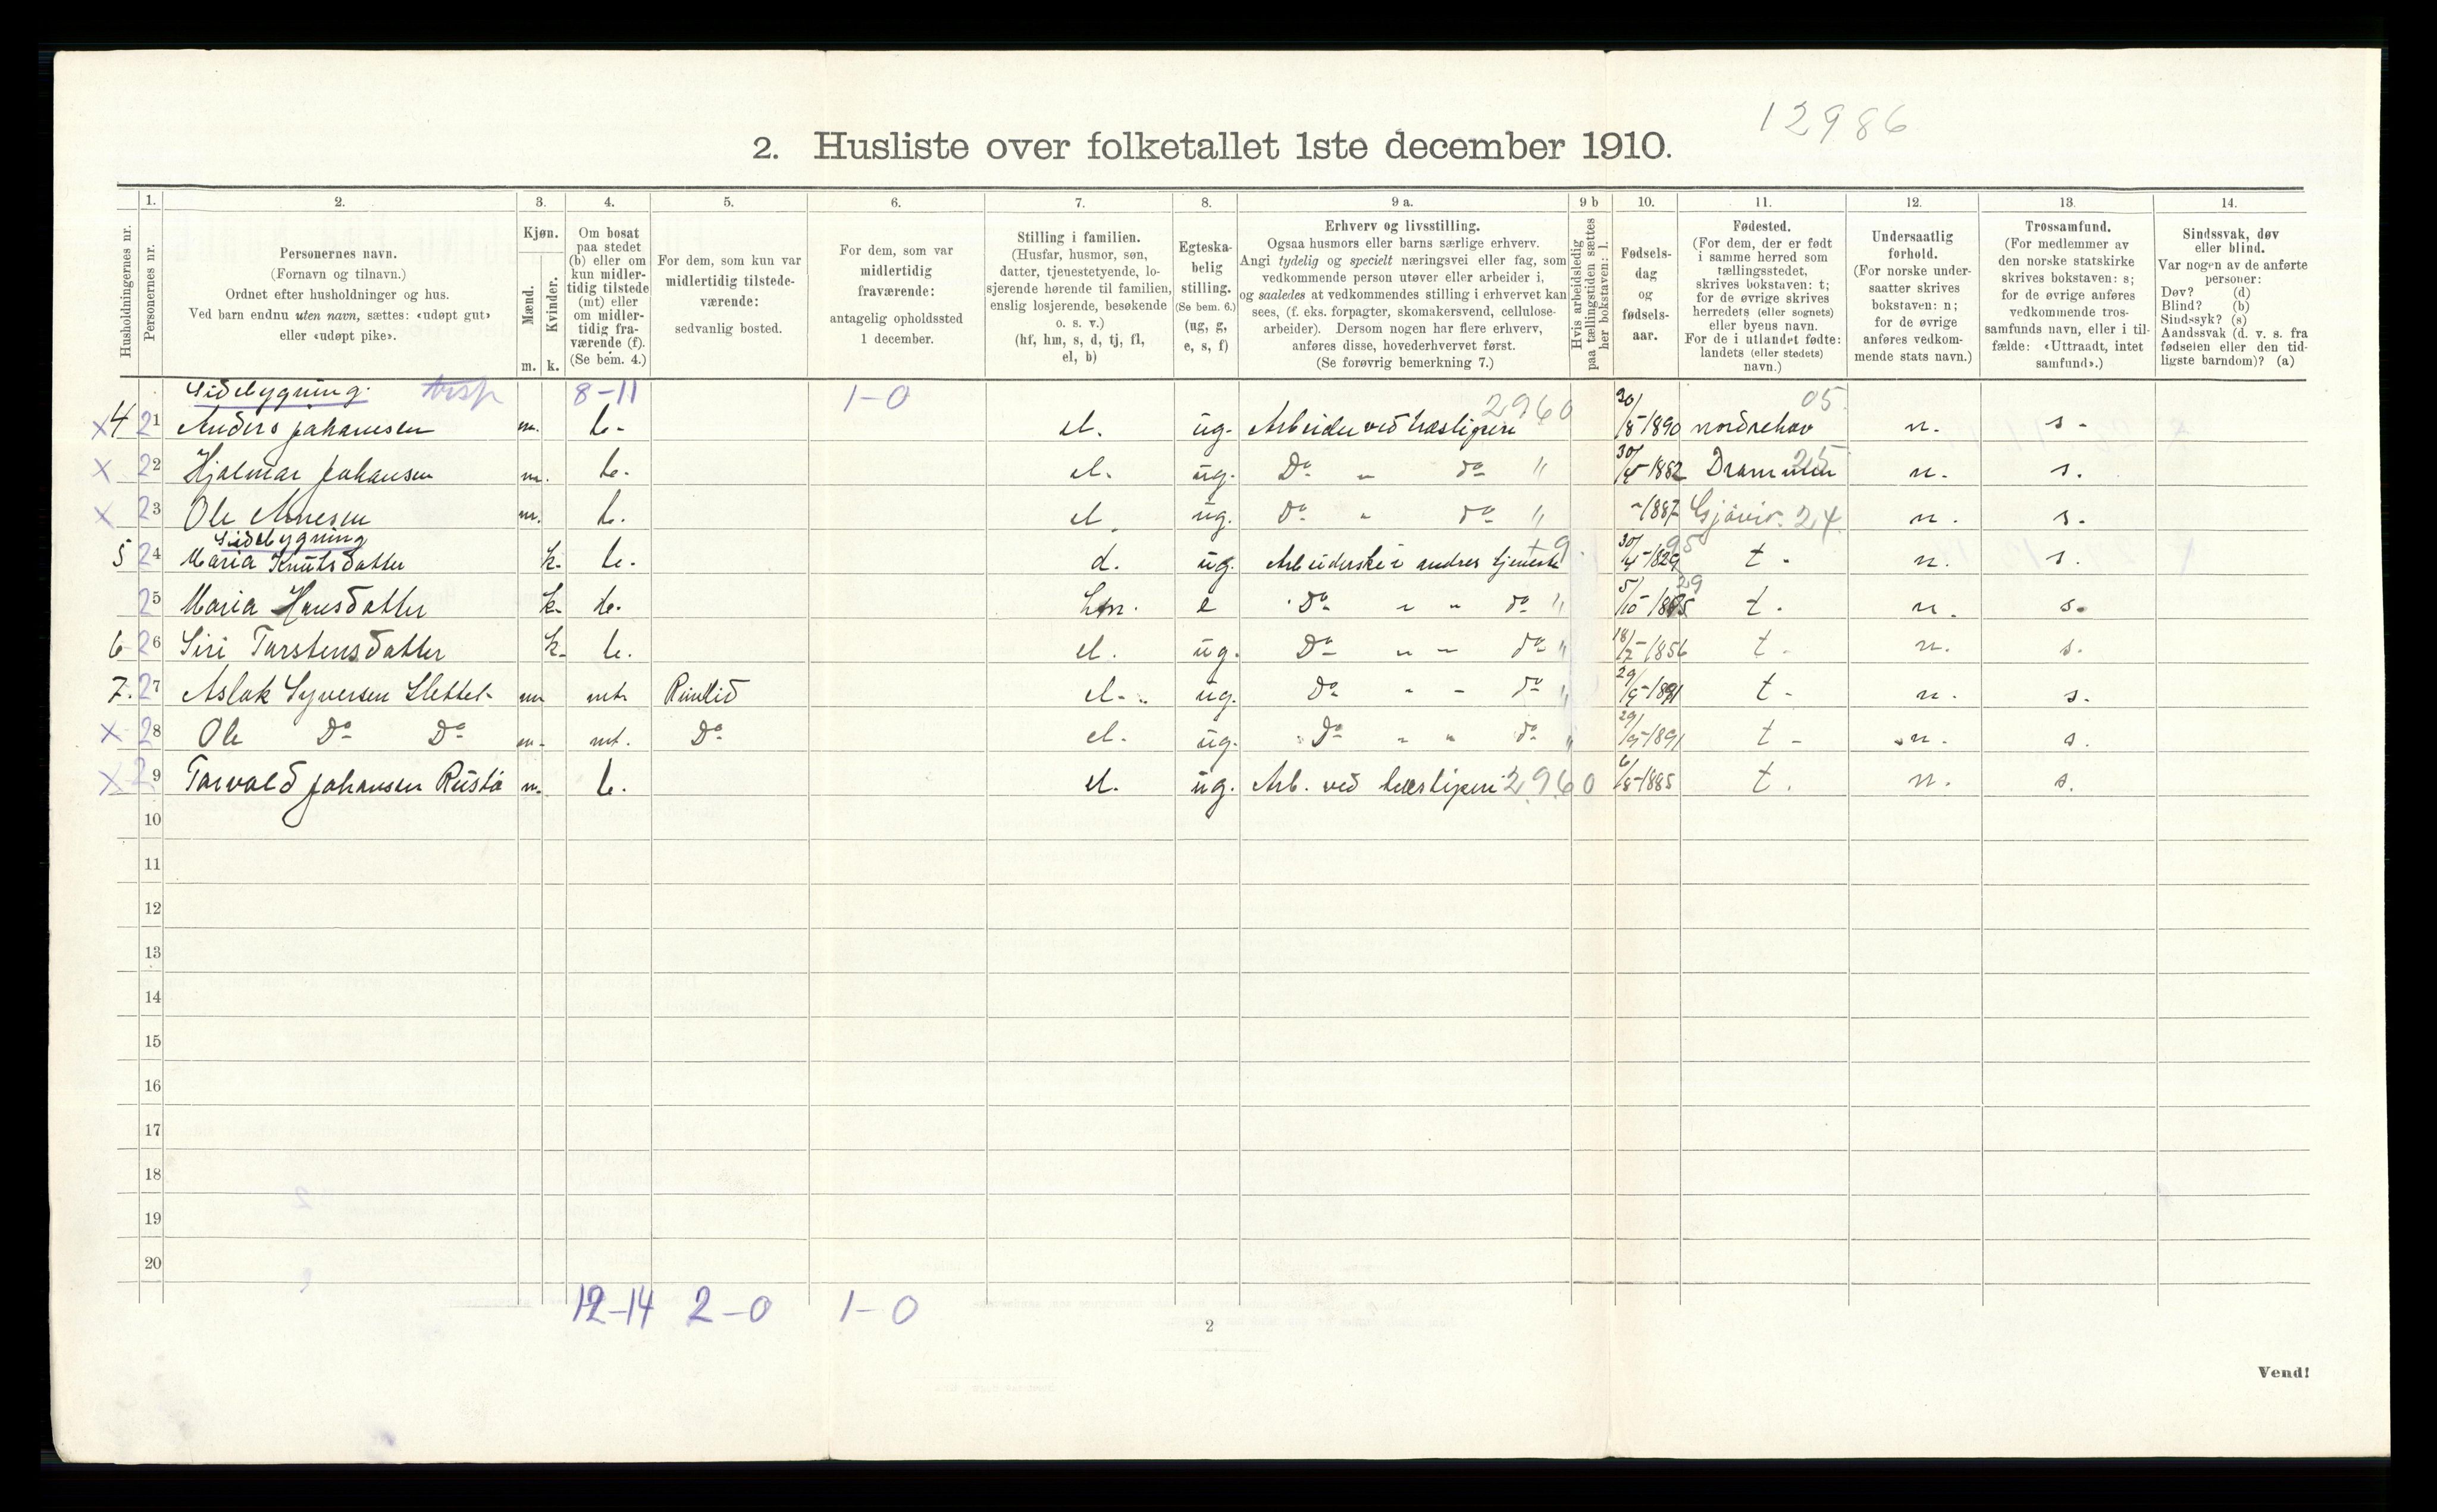 12986
2. Husliste over folketallet 1ste december 1910.
Husholdningernes nr.
1.
Personernes nr.
2.
Personernes navn.
(Fornavn og tilnavn.)
Ordnet efter husholdninger og hus.
Ved barn endnu uten navn, sættes: «udøpt gut»
eller «udøpt pike».
3.
Kjøn.
Mænd.
Kvinder.
m. k.
4.
Om bosat
paa stedet
(b) eller om
kun midler-
tidig tilstede
(mt) eller
om midler-
tidig fra-
værende (f).
(Se bem. 4.)
5.
For dem, som kun var
midlertidig tilstede-
værende:
sedvanlig bosted.
6.
For dem, som var
midlertidig
fraværende:
antagelig opholdssted
1 december.
7.
Stilling i familien.
(Husfar, husmor, søn,
datter, tjenestetyende, lo-
sjerende hørende til familien,
enslig losjerende, besøkende
o. s. v.)
(hf, hm, s, d, tj, fl,
el, b)
8.
Egteska-
belig
stilling.
(Se bem. 6.)
(ug, g,
e, s, f)
9 a.
Erhverv og livsstilling.
Ogsaa husmors eller barns særlige erhverv.
Angi tydelig og specielt næringsvei eller fag, som
vedkommende person utøver eller arbeider i,
og saaledes at vedkommendes stilling i erhvervet kan
sees, (f. eks. forpagter, skomakersvend, cellulose-
arbeider). Dersom nogen har flere erhverv,
anføres disse, hovederhvervet først.
(Se forøvrig bemerkning 7.)
9 b
Hvis arbeidsledig
paa tællingstiden sættes
her bokstaven: l.
10.
Fødsels-
dag
og
fødsels-
aar.
11.
Fødested.
(For dem, der er født
i samme herred som
tællingsstedet,
skrives bokstaven: t;
for de øvrige skrives
herredets (eller sognets)
eller byens navn.
For de i utlandet fødte:
landets (eller stedets)
navn.)
12.
Undersaatlig
forhold.
(For norske under-
saatter skrives
bokstaven: n;
for de øvrige
anføres vedkom-
mende stats navn.)
13.
Trossamfund.
(For medlemmer av
den norske statskirke
skrives bokstaven: s;
for de øvrige anføres
vedkommende tros-
samfunds navn, eller i til-
fælde: «Uttraadt, intet
samfund».)
14.
Sindssvak, døv
eller blind.
Var nogen av de anførte
personer:
Døv? (d)
Blind? (b)
Sindssyk? (s)
Aandssvak (d. v. s. fra
fødselen eller den tid-
ligste barndom)? (a)
Sidebygning. 8-11 1-0
x4 21 Anders Johansen m. b. el. ug. Arbeider ved træsliperi 2960 30/8-1890 Nordrehov 05 n. s.
x 22 Hjalmar Johansen m. b. el. ug. Do " do " 30/5-1882 Drammen 25 n. s.
x 23 Ole Arnesen m. b. el. ug. Do " do " -1887 Gjøvik 24 n. s.
Sidebygning
5 24 Maria Knutsdatter k. b. d. ug. Arbeiderske i andres tjeneste 30/4-1829 t. n. s.
25 Maria Hansdatter k. b. hm. e Do " " do " t. n. s.
6 26 Siri Torstensdatter k. b. el. ug. Do " " do " 18/7-1856 t. n. s.
7. 27 Aslak Syversen Slettet m mt. Rimlid el. ug. Do " " do " 29/9-1891 t. n. s.
x 28 Ole Do Do m. mt. Do el. ug. Do " " do " 29/9-1891 t. n. s.
x 29 Torvald Johansen Rustø m. b. el. ug. Arb. ved træsliperi 2960 6/8-1885 t. n. s.
10
11
12
13
14
15
16
17
18
19
20
12-14 2-0 1-0
2
Vend!